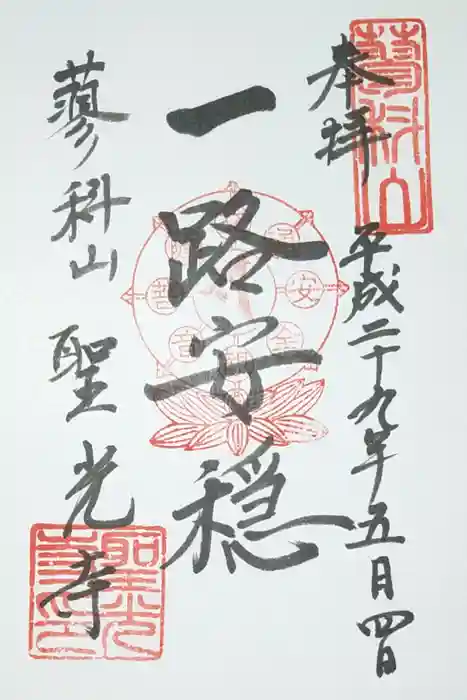 奉拝
平成二十九年五月四日
蓼科山
一路安穏
蓼科山 聖光寺